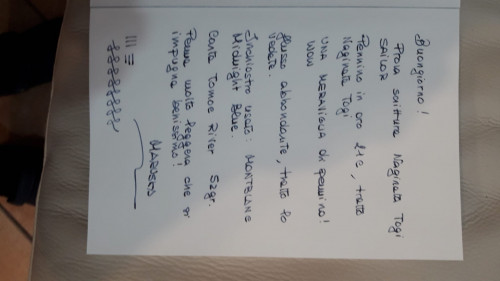 Buongiorno!
Prova scrittura Naginata Togi
SAILOR
Pennino in oro 21c, tratto
Naginata Togi
UNA MERAVIGLIA di pennino!
Wow
flusso abbondante, tratto lo
vedete.
Inchiostro usato: MONTBLANC
Midnight Blue.
Carta Tomoe River 52gr.
Penna molto leggera che si
impugna benissimo!